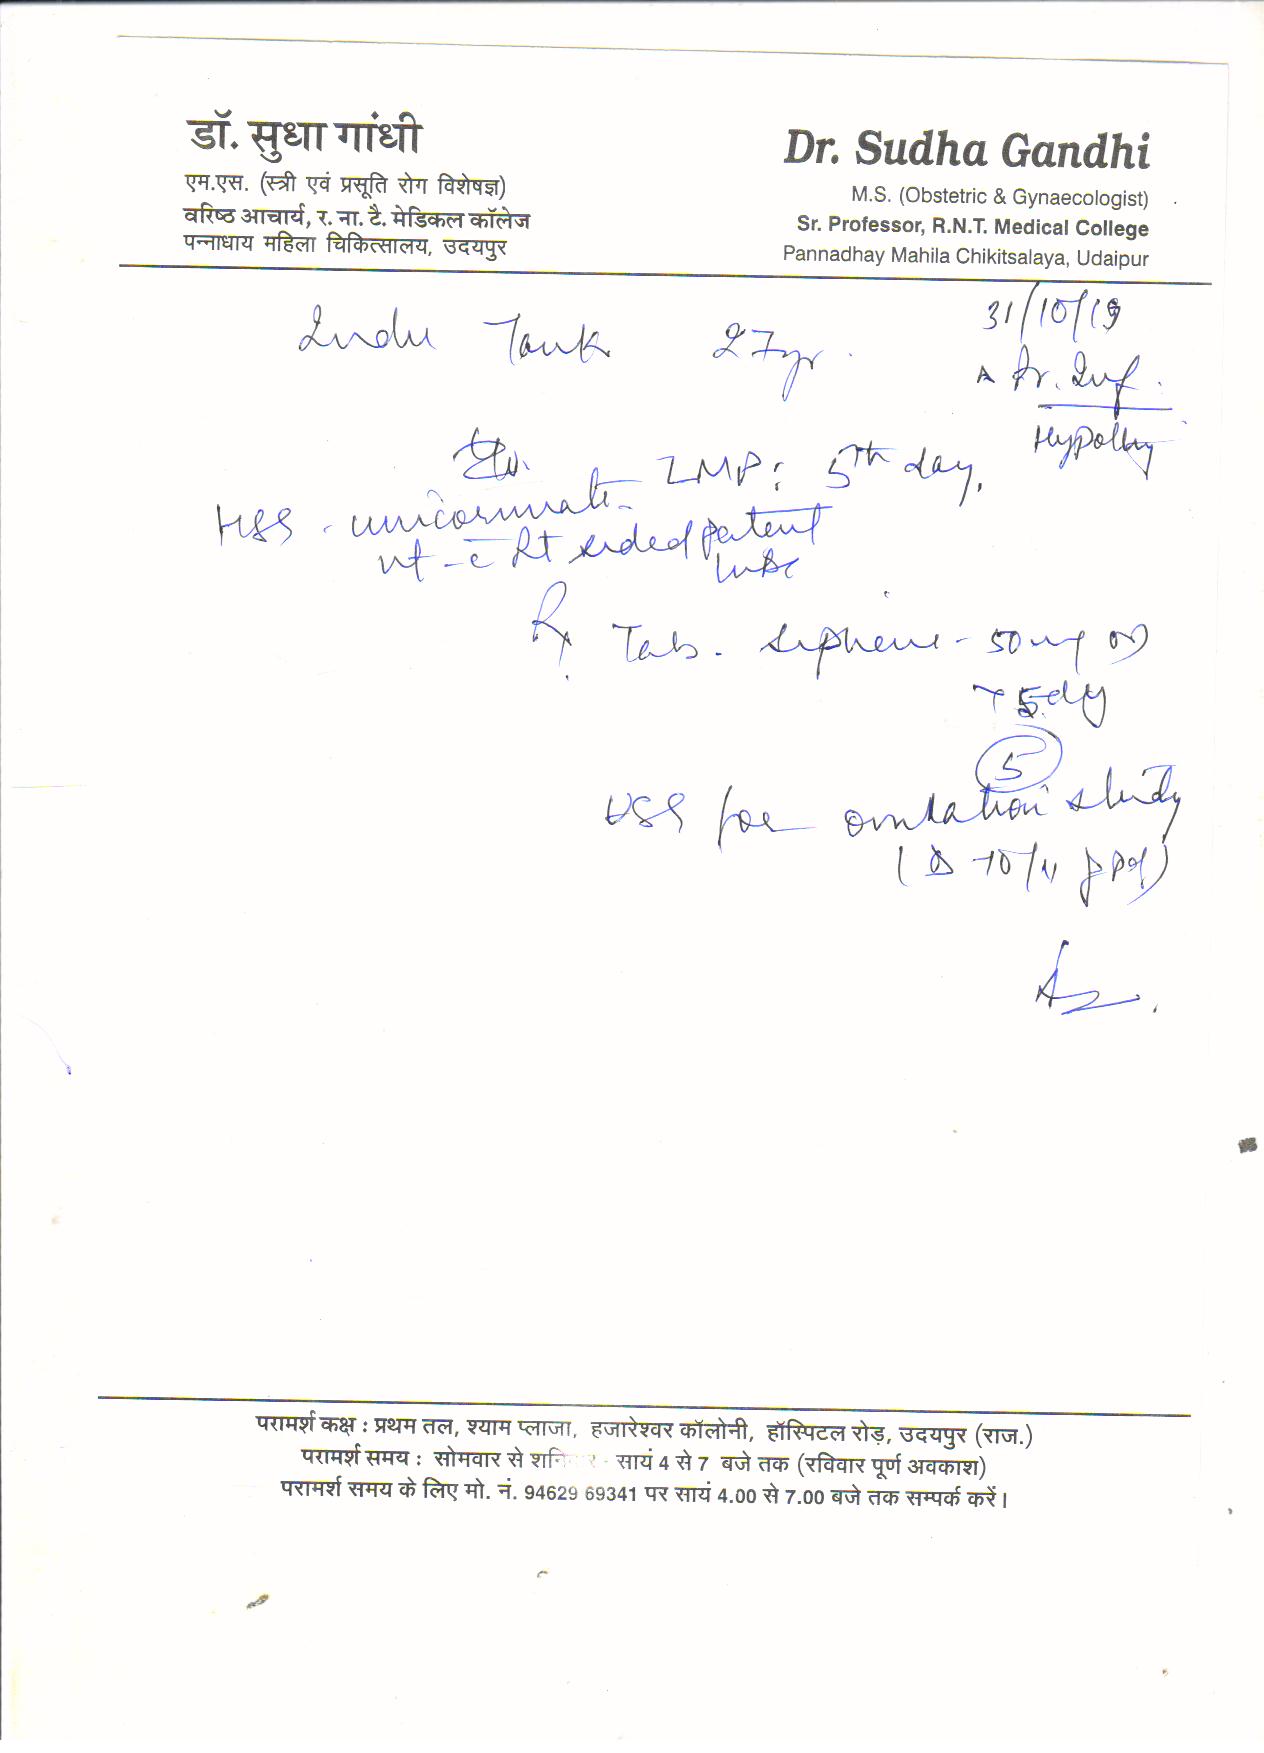 डॉ. सुधा गांधी
एम.एस. (स्त्री एवं प्रसूति रोग विशेषज्ञ)
वरिष्ठ आचार्य, र. ना. टै. मेडिकल कॉलेज
पन्नाधाय महिला चिकित्सालय, उदयपुर
Dr. Sudha Gandhi
M.S. (Obstetric & Gynaecologist)
Sr. Professor, R.N.T. Medical College
Pannadhay Mahila Chikitsalaya, Udaipur
31/10/19
Indu Tank 27yr.
Pr. Inf.
LMP: 5th day,
HSG - unicornuate
ut - c Rt sided patent
Rx Tab. Siphene - 50 mg OD
5 day
5
USG for ovulation study
परामर्श कक्ष : प्रथम तल, श्याम प्लाजा, हजारेश्वर कॉलोनी, हॉस्पिटल रोड़, उदयपुर (राज.)
परामर्श समय : सोमवार से सायं 4 से 7 बजे तक (रविवार पूर्ण अवकाश)
परामर्श समय के लिए मो. नं. 94629 69341 पर सायं 4.00 से 7.00 बजे तक सम्पर्क करें।